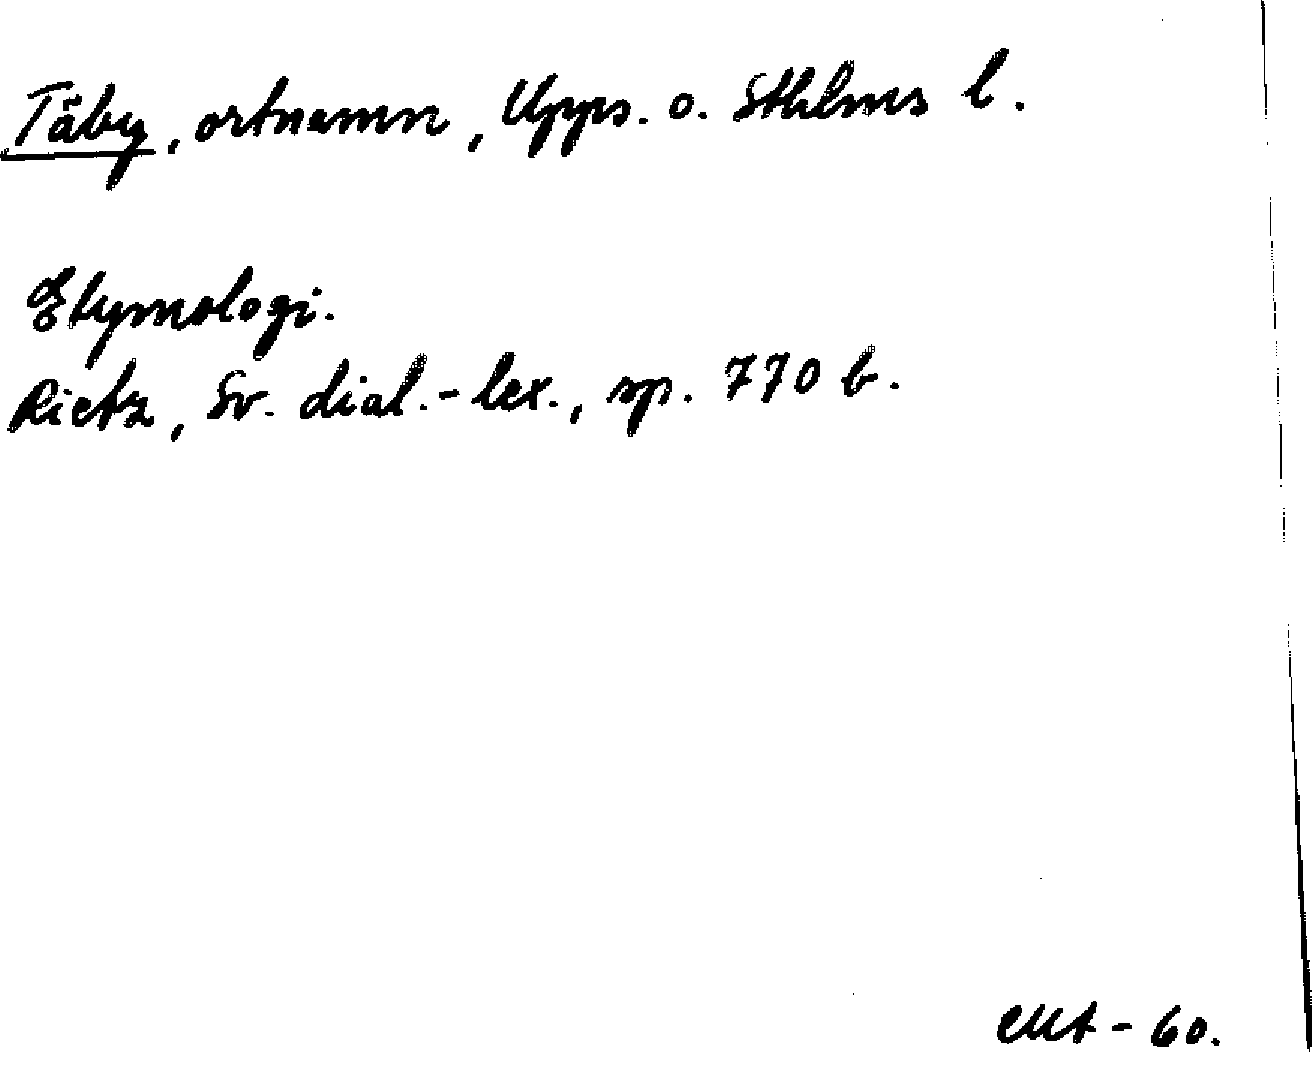 Täby, ortnamn, Upps. o. Sthlms l.
Etymologi.
Rietz, Sv. dial.-lex., sp. 770 b.